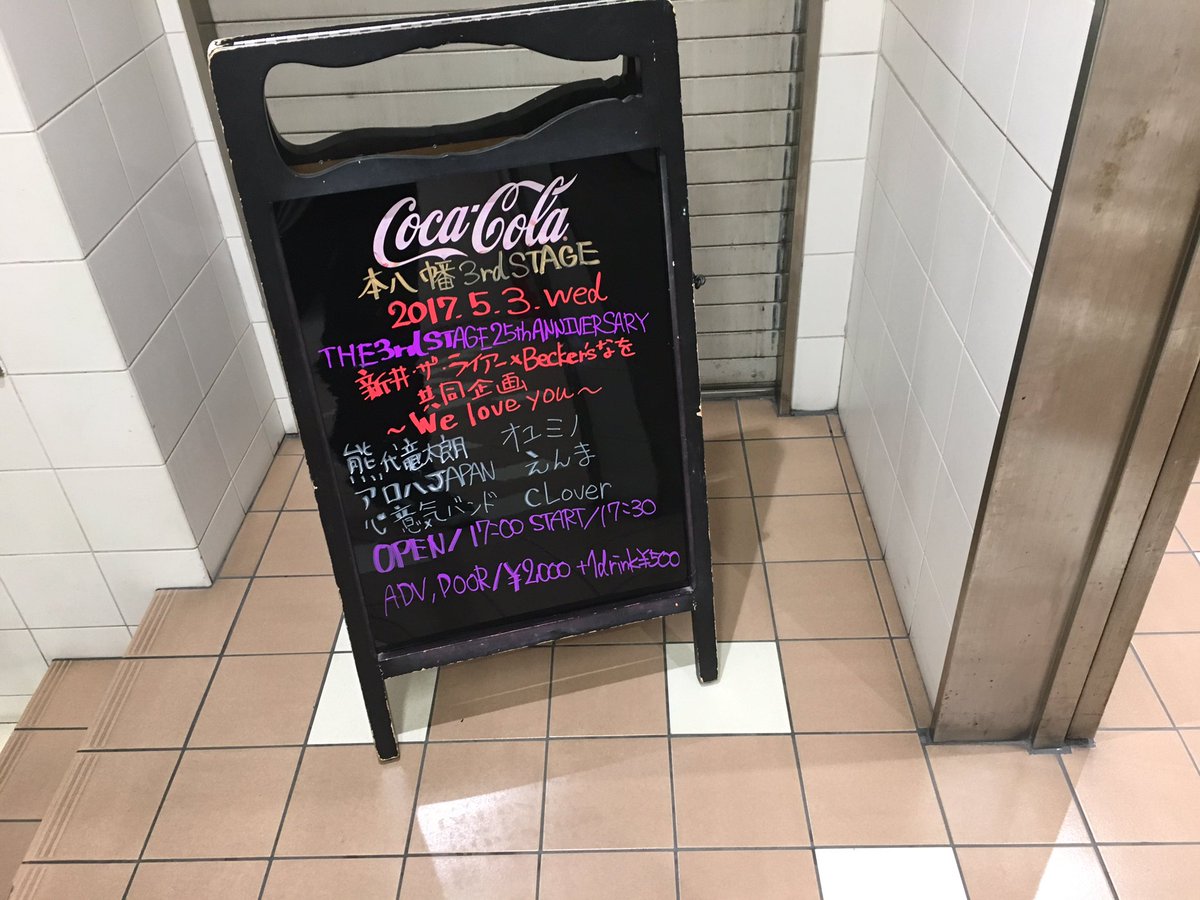 Coca-Cola
本八幡3rdSTAGE
2017.5.3.wed
THE3rdSTAGE25thANNIVERSARY
新井・ザ・ライアー×Beckerʼsなを
共同企画
～We love you～
熊代竜太朗 オユミノ
アロハJAPAN えんま
心意気バンド CLover
OPEN/17:00 START/17:30
ADV,DOOR/¥2.000+1drink¥500